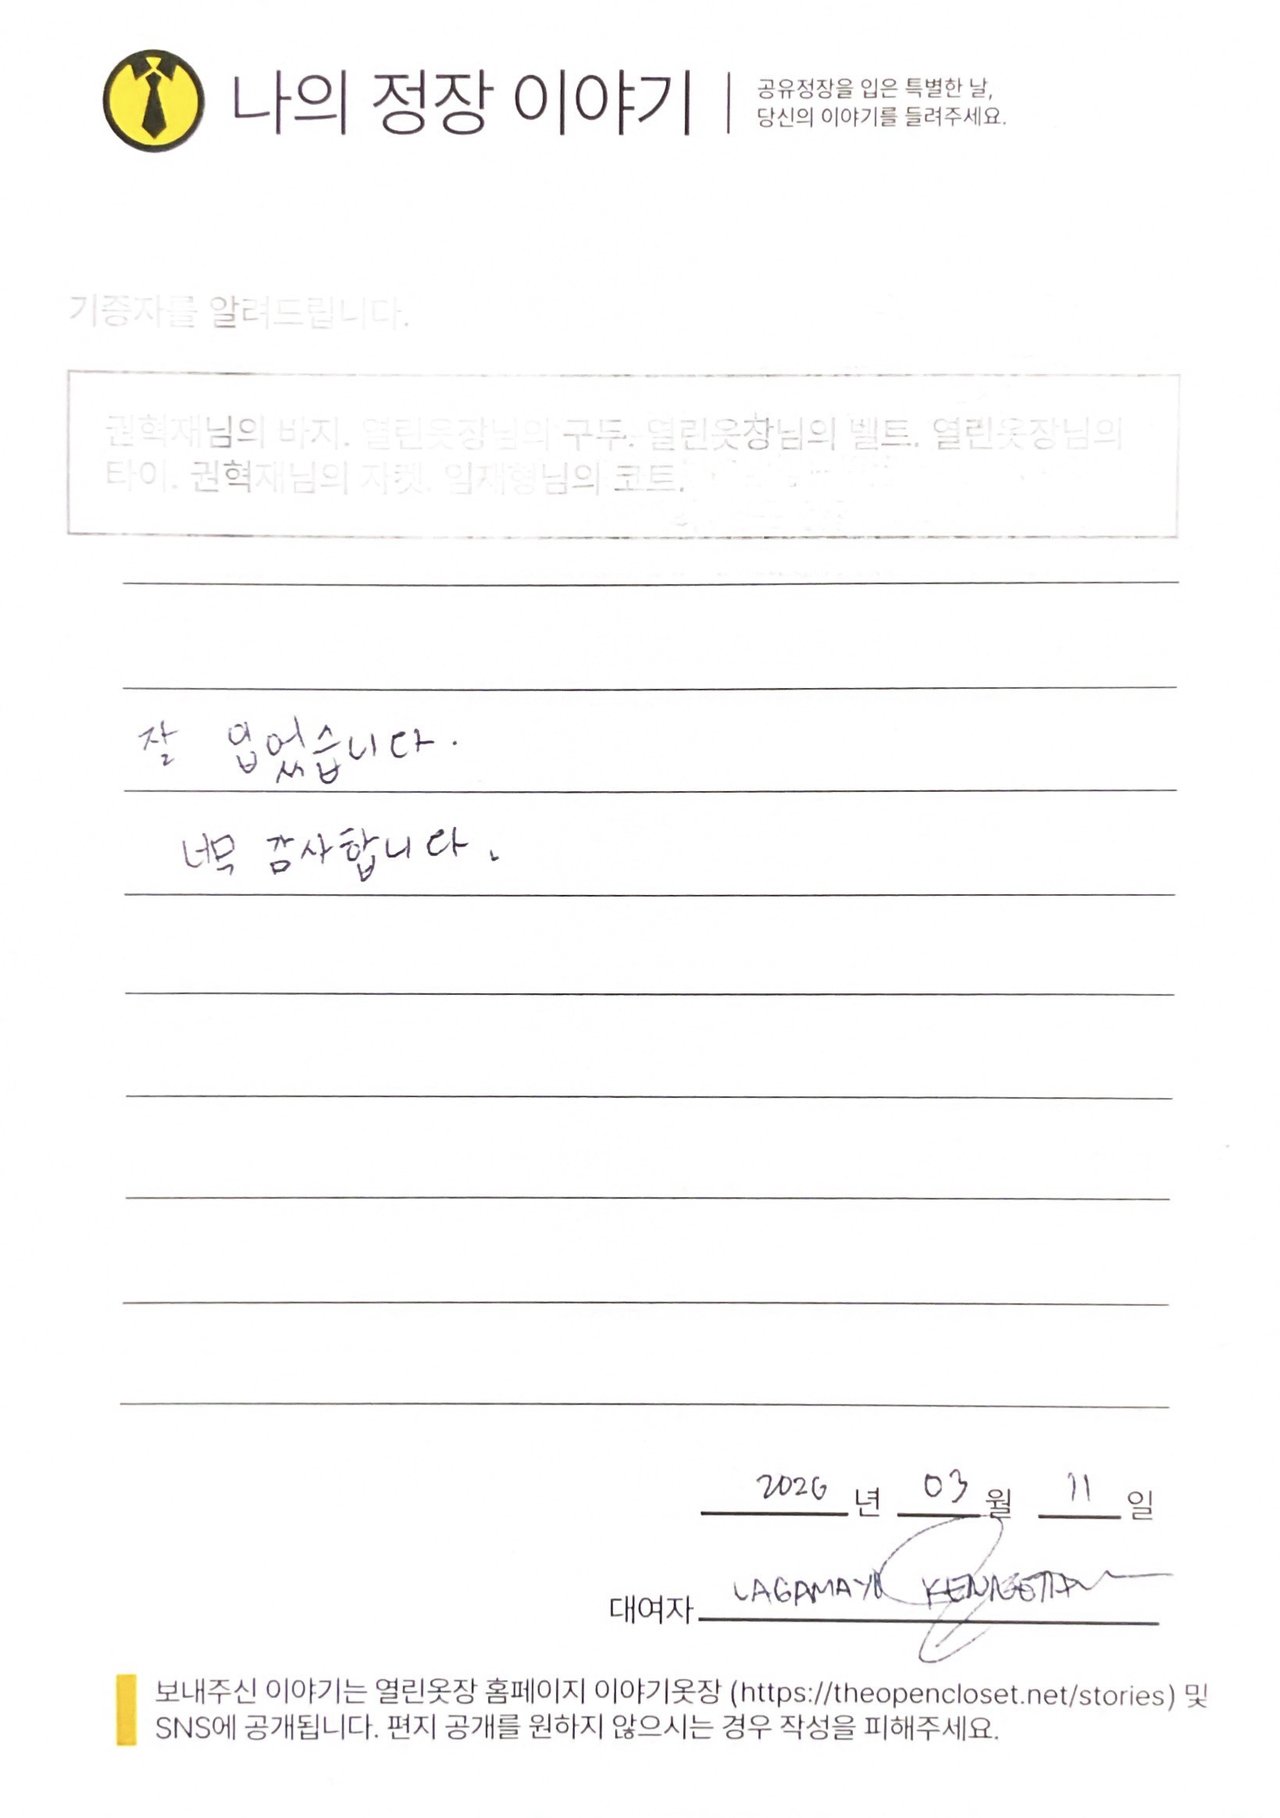 나의 정장 이야기
공유정장을 입은 특별한 날,
당신의 이야기를 들려주세요.
기증자를 알려드립니다.
권혁재님의 바지. 열린옷장님의 구두. 열린옷장님의 벨트. 열린옷장님의
타이. 권혁재님의 자켓. 임재형님의 코트.
잘 입었습니다.
너무 감사합니다.
2026 년 03 월 11 일
대여자 LAGAMAYO
보내주신 이야기는 열린옷장 홈페이지 이야기옷장 (https://theopencloset.net/stories) 및
SNS에 공개됩니다. 편지 공개를 원하지 않으시는 경우 작성을 피해주세요.